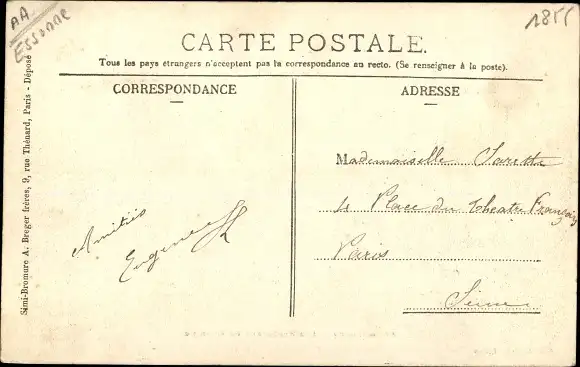 AA
ESSONNE
CARTE POSTALE.
Tous les pays étrangers n'acceptent pas la correspondance au recto. (Se renseigner à la poste).
CORRESPONDANCE
Amitiés
Eugène
ADRESSE
Mademoiselle
4 Place du Théatre Français
Paris
Seine
Simi-Bromure A. Breger frères, 9, rue Thénard, Paris - Déposé